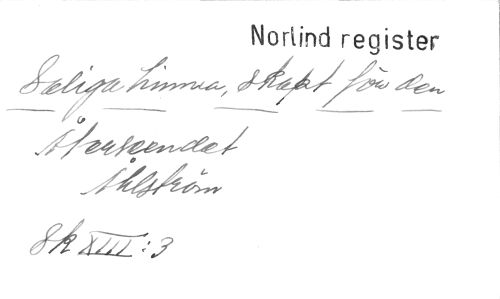 Norlind register
Saliga Linnea, skapt för den
Återvändet
Åhlström
Sk XIII:3